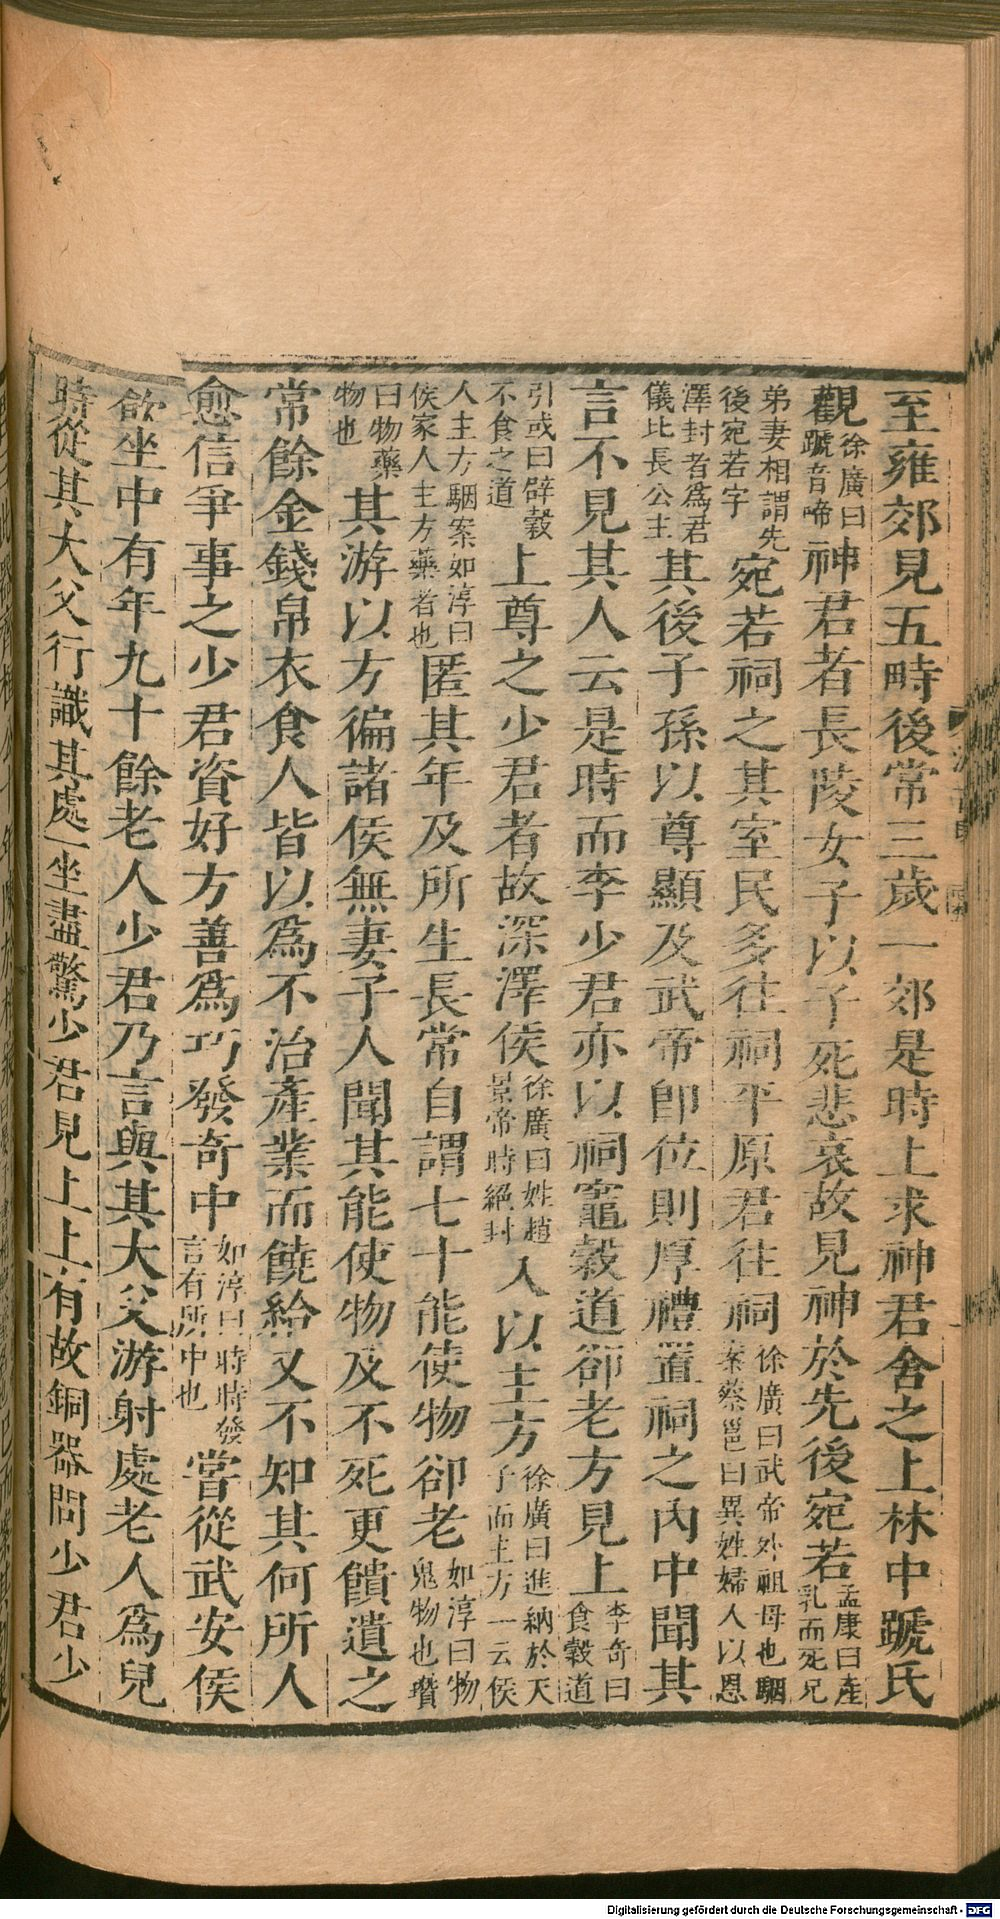 至雍郊見五畤後常三歲一郊是時上求神君舍之上林中蹏氏
觀徐廣曰蹏音啼神君者長陵女子以子死悲哀故見神於先後宛若孟康曰產乳而死兄
弟妻相謂先後宛若字宛若祠之其室民多往祠平原君往祠徐廣曰武帝外祖母也駰案蔡邕曰異姓婦人以恩
澤封者爲君儀比長公主其後子孫以尊顯及武帝卽位則厚禮置祠之內中聞其
言不見其人云是時而李少君亦以祠竈穀道卻老方見上李奇曰食穀道
引或曰辟穀不食之道上尊之少君者故深澤侯徐廣曰姓趙景帝時絕封入以主方徐廣曰進納於天子而主方一云侯
人主方駰案如淳曰侯家人主方藥者也匿其年及所生長常自謂七十能使物卻老如淳曰物鬼物也瓚
曰物藥物也其游以方徧諸侯無妻子人聞其能使物及不死更饋遺之
常餘金錢帛衣食人皆以爲不治產業而饒給又不知其何所人
愈信爭事之少君資好方善爲巧發奇中如淳曰時時發言有所中也嘗從武安侯
飲坐中有年九十餘老人少君乃言與其大父游射處老人爲兒
時從其大父行識其處一坐盡驚少君見上上有故銅器問少君少
Digitalisierung gefördert durch die Deutsche Forschungsgemeinschaft - DFG